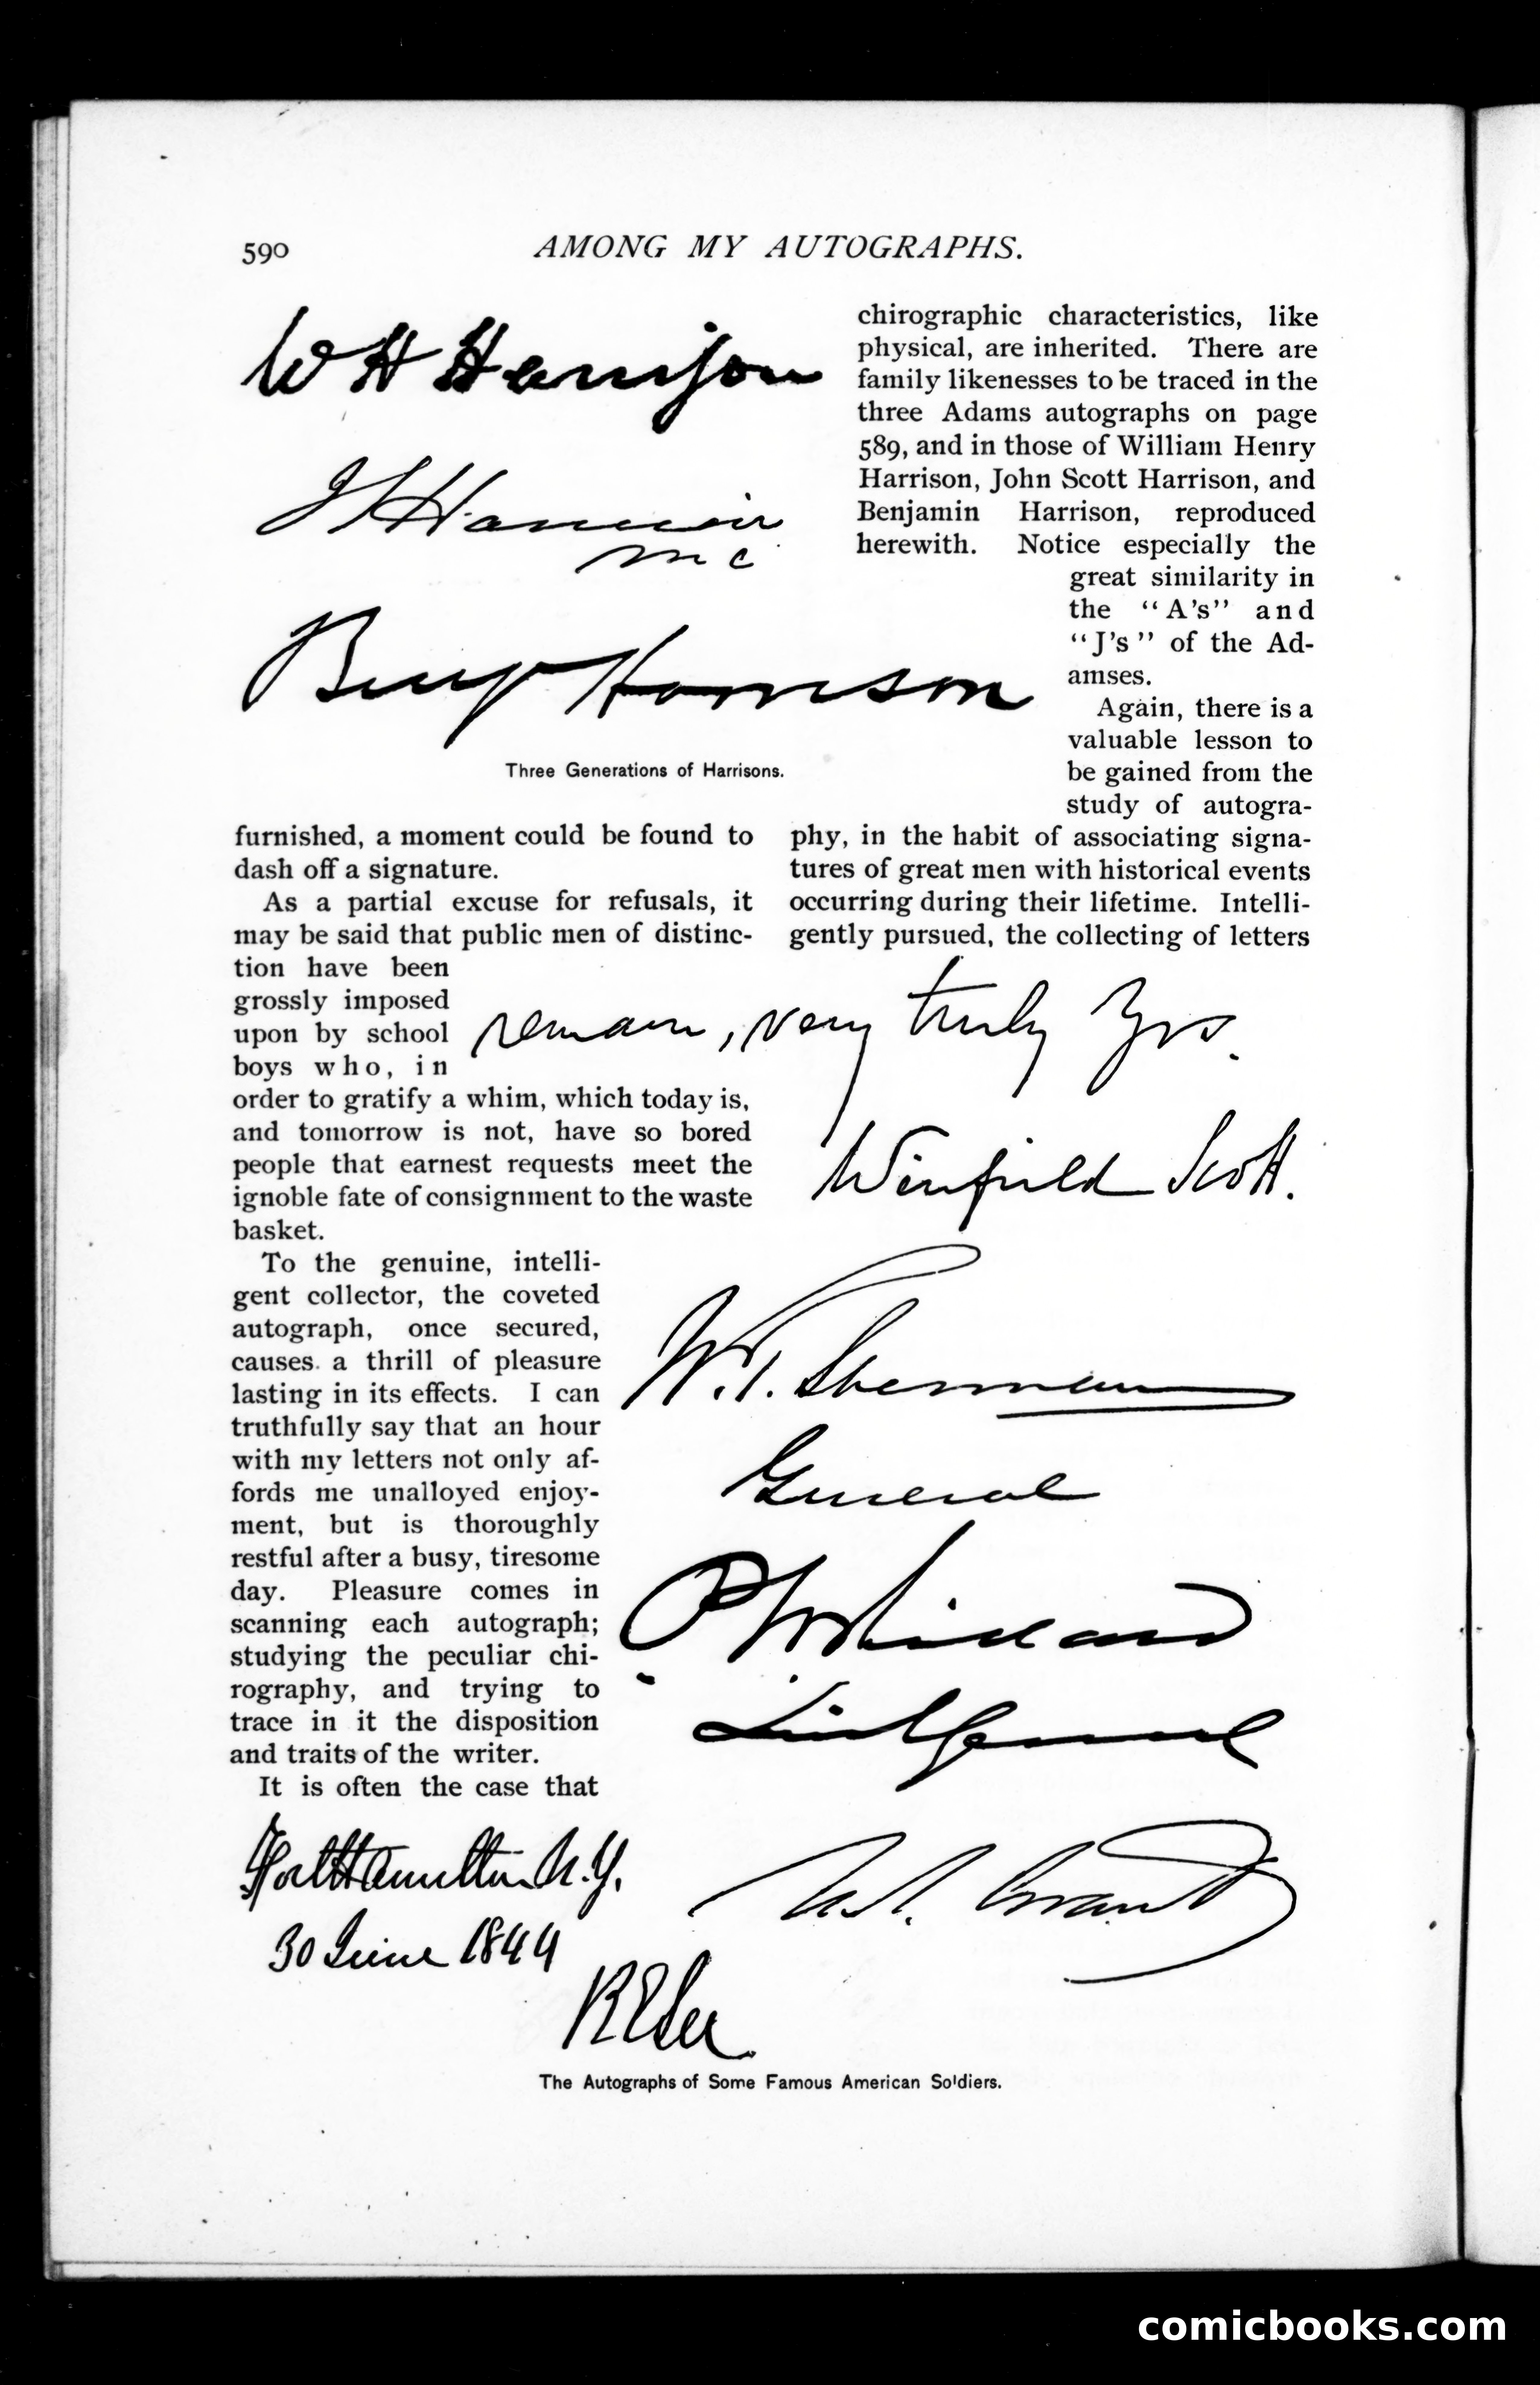 590
AMONG MY AUTOGRAPHS.
W H Harrison
J S Harrison
M C
Benj Harrison
Three Generations of Harrisons.
furnished, a moment could be found to
dash off a signature.
As a partial excuse for refusals, it
may be said that public men of distinc-
tion have been
grossly imposed
upon by school
boys who, in
order to gratify a whim, which today is,
and tomorrow is not, have so bored
people that earnest requests meet the
ignoble fate of consignment to the waste
basket.
To the genuine, intelli-
gent collector, the coveted
autograph, once secured,
causes a thrill of pleasure
lasting in its effects. I can
truthfully say that an hour
with my letters not only af-
fords me unalloyed enjoy-
ment, but is thoroughly
restful after a busy, tiresome
day. Pleasure comes in
scanning each autograph;
studying the peculiar chi-
rography, and trying to
trace in it the disposition
and traits of the writer.
It is often the case that
chirographic characteristics, like
physical, are inherited. There are
family likenesses to be traced in the
three Adams autographs on page
589, and in those of William Henry
Harrison, John Scott Harrison, and
Benjamin Harrison, reproduced
herewith. Notice especially the
great similarity in
the "A's" and
"J's" of the Ad-
amses.
Again, there is a
valuable lesson to
be gained from the
study of autogra-
phy, in the habit of associating signa-
tures of great men with historical events
occurring during their lifetime. Intelli-
gently pursued, the collecting of letters
remain, very truly Yrs.
Winfield Scott.
W. T. Sherman
General
P H Sheridan
Lieut General
U. S. Grant
Fort Hamilton N.Y.
30 June 1844
R E Lee
The Autographs of Some Famous American Soldiers.
comicbooks.com